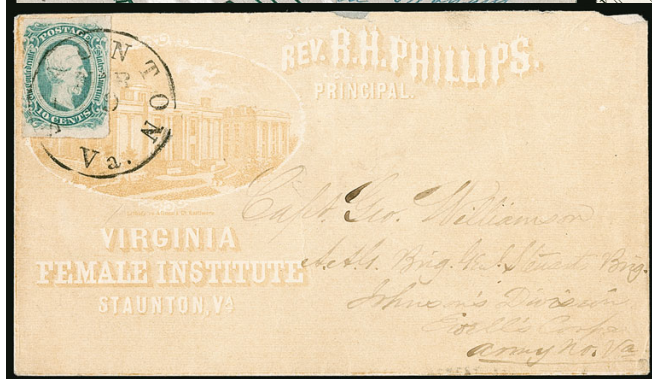 POSTAGE
TEN CENTS
STAUNTON
Va.
REV. R.H. PHILLIPS.
PRINCIPAL.
VIRGINIA
FEMALE INSTITUTE
STAUNTON, Va
Capt. Geo. Williamson
Brig.
Johnson's Division
Ewell's Corps
Army No. Va.